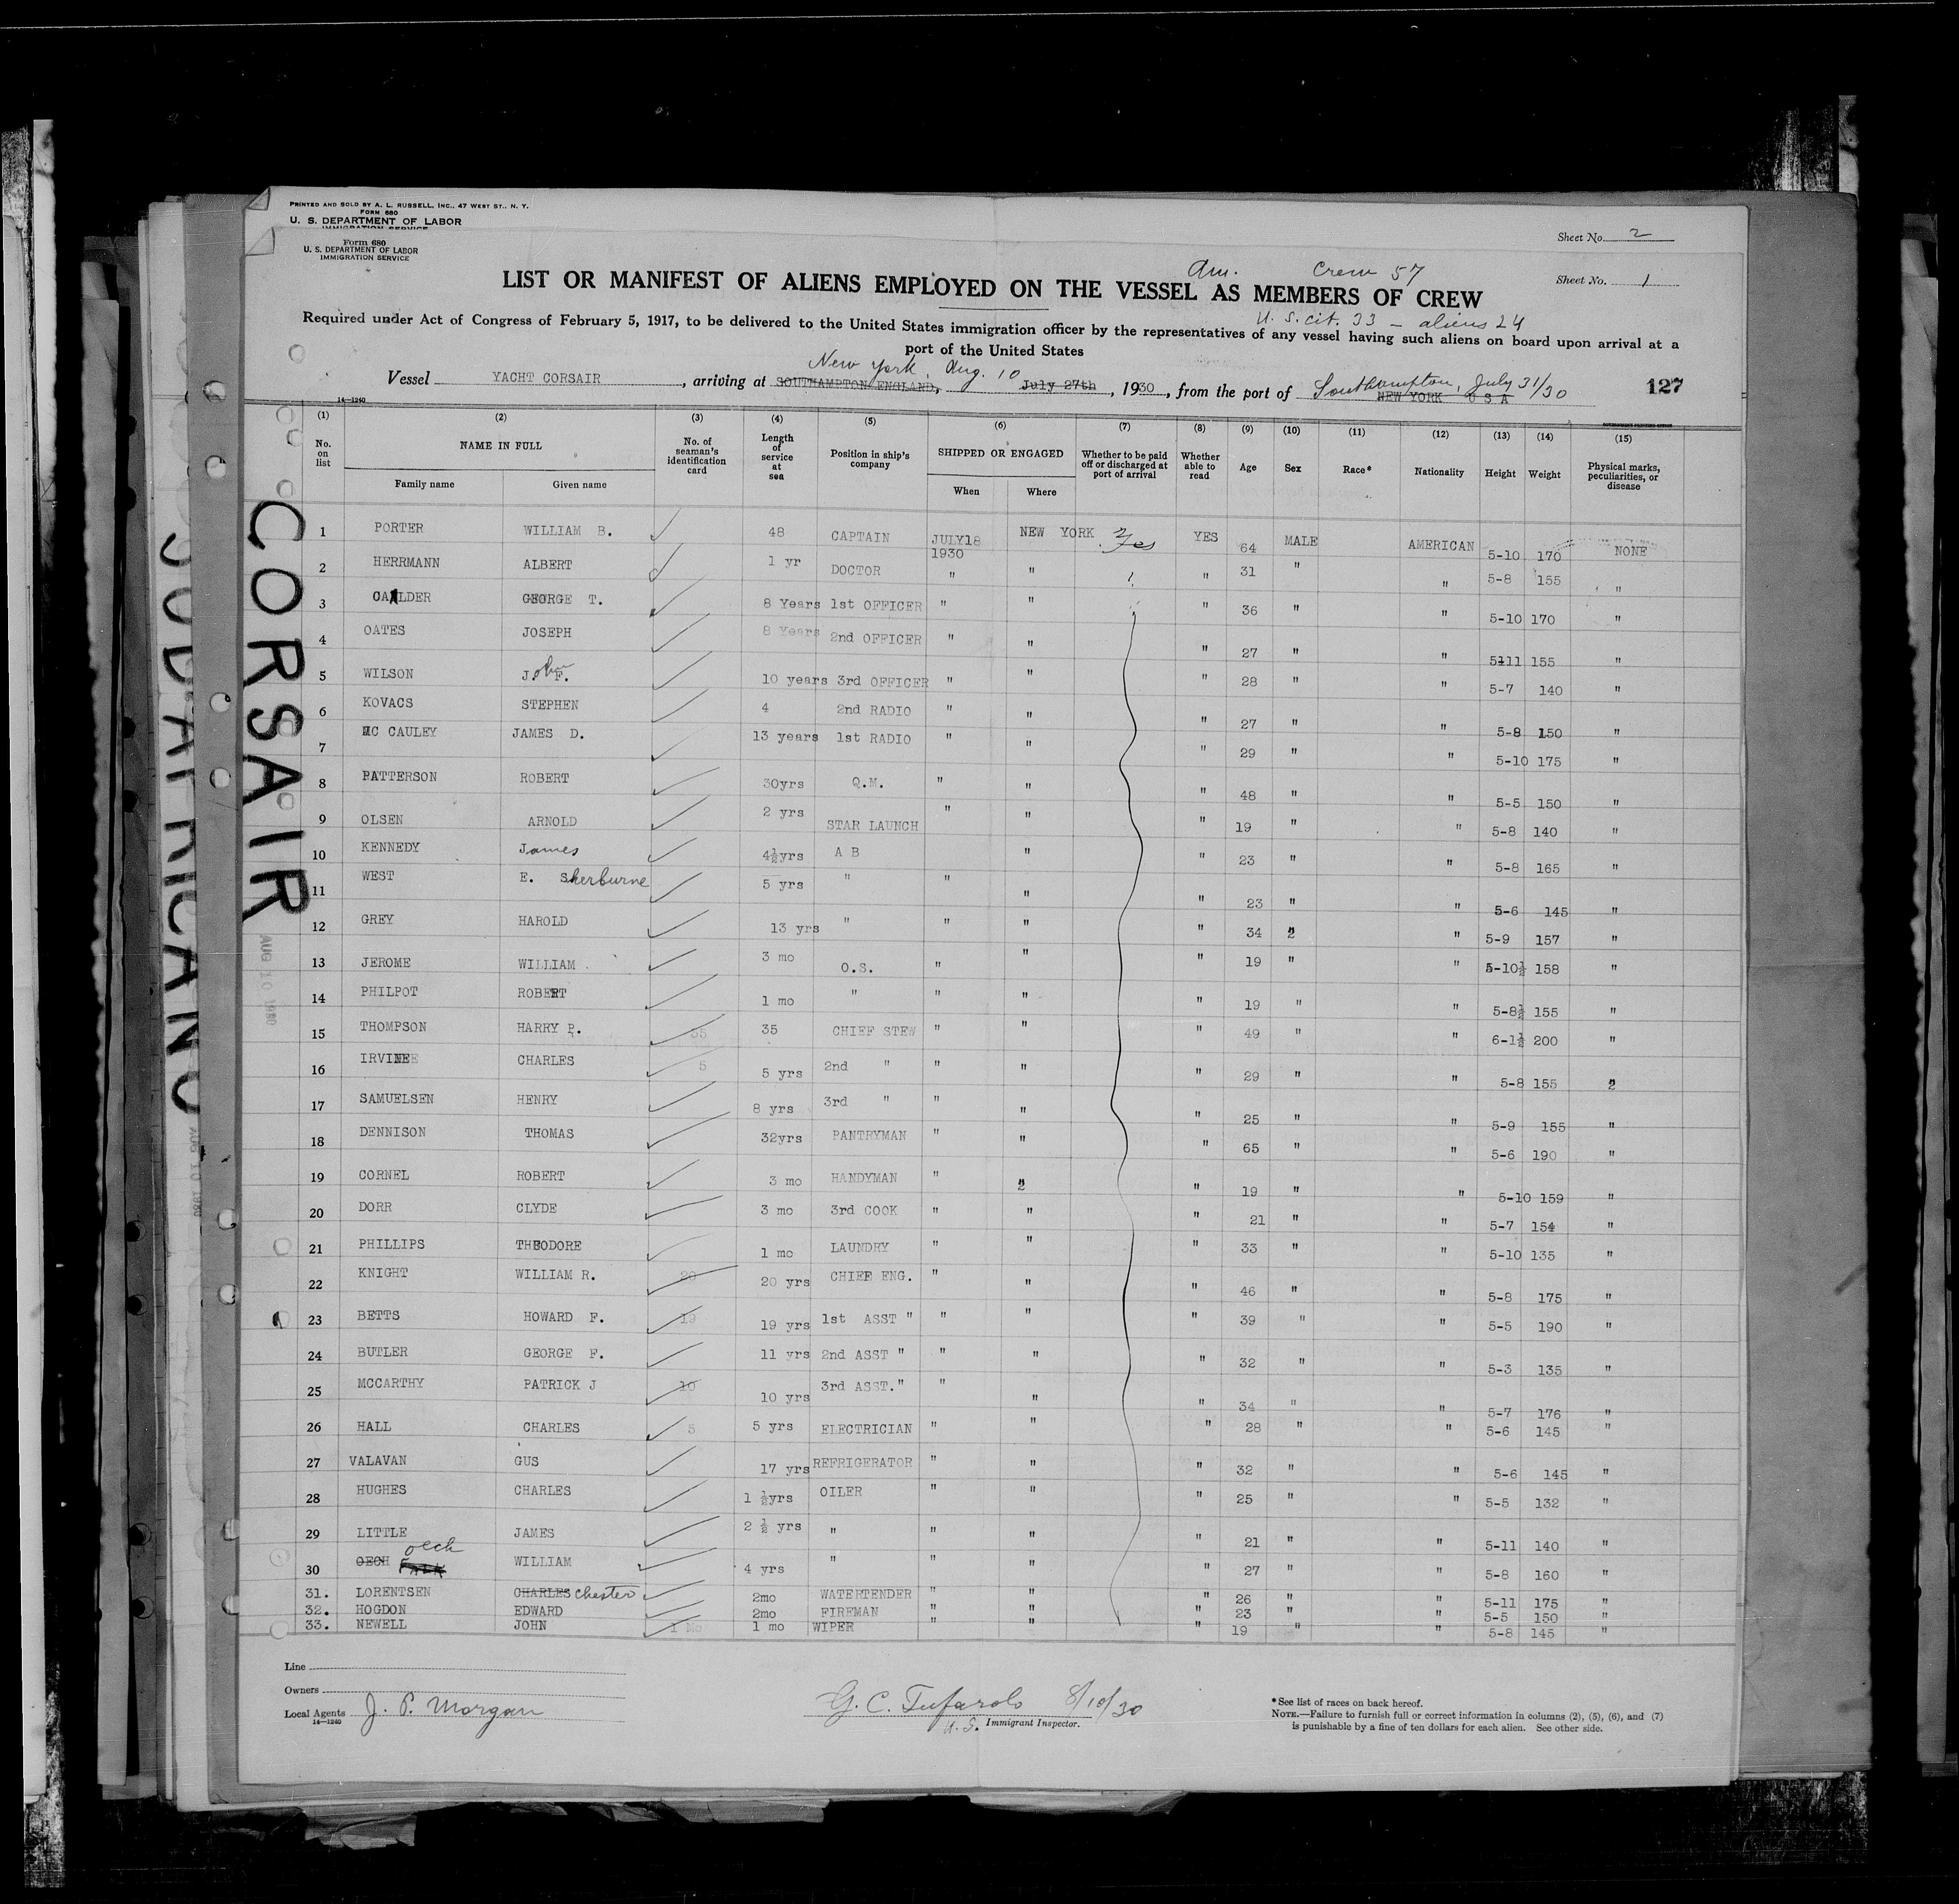 PRINTED AND SOLD BY A. L. RUSSELL, INC., 47 WEST ST., N. Y.
FORM 680
U. S. DEPARTMENT OF LABOR
IMMIGRATION SERVICE
Sheet No. 2
Form 680
U. S. DEPARTMENT OF LABOR
IMMIGRATION SERVICE
Sheet No. 1
Am. Crew 57
LIST OR MANIFEST OF ALIENS EMPLOYED ON THE VESSEL AS MEMBERS OF CREW
U. S. cit. 33 — aliens 24
Required under Act of Congress of February 5, 1917, to be delivered to the United States immigration officer by the representatives of any vessel having such aliens on board upon arrival at a
port of the United States
New York, Aug. 10
Vessel YACHT CORSAIR, arriving at SOUTHAMPTON ENGLAND, July 27th, 1930, from the port of Southampton, July 31/30
NEW YORK U S A
127
14—1240
(1) (2) (3) (4) (5) (6) (7) (8) (9) (10) (11) (12) (13) (14) (15)
No. on list NAME IN FULL No. of seaman's identification card Length of service at sea Position in ship's company SHIPPED OR ENGAGED Whether to be paid off or discharged at port of arrival Whether able to read Age Sex Race* Nationality Height Weight Physical marks, peculiarities, or disease
Family name Given name When Where
1 PORTER WILLIAM B. 48 CAPTAIN JULY18 1930 NEW YORK Yes YES 64 MALE AMERICAN 5-10 170 NONE
2 HERRMANN ALBERT 1 yr DOCTOR " " " 31 " " 5-8 155 "
3 CALDER GEORGE T. 8 Years 1st OFFICER " " " 36 " " 5-10 170 "
4 OATES JOSEPH 8 Years 2nd OFFICER " " " 27 " " 5-11 155 "
5 WILSON John F. 10 years 3rd OFFICER " " " 28 " " 5-7 140 "
6 KOVACS STEPHEN 4 2nd RADIO " " " 27 " " 5-8 150 "
7 MC CAULEY JAMES D. 13 years 1st RADIO " " " 29 " " 5-10 175 "
8 PATTERSON ROBERT 30yrs Q.M. " " " 48 " " 5-5 150 "
9 OLSEN ARNOLD 2 yrs STAR LAUNCH " " " 19 " " 5-8 140 "
10 KENNEDY James 4½yrs A B " " 23 " " 5-8 165 "
11 WEST E. Sherburne 5 yrs " " " " 23 " " 5-6 145 "
12 GREY HAROLD 13 yrs " " " " 34 2 " 5-9 157 "
13 JEROME WILLIAM 3 mo O.S. " " " 19 " " 5-10½ 158 "
14 PHILPOT ROBERT 1 mo " " " " 19 " " 5-8½ 155 "
15 THOMPSON HARRY P. 35 35 CHIEF STEW " " " 49 " " 6-1½ 200 "
16 IRVINE CHARLES 5 5 yrs 2nd " " " " 29 " " 5-8 155 2
17 SAMUELSEN HENRY 8 yrs 3rd " " " " 25 " " 5-9 155 "
18 DENNISON THOMAS 32yrs PANTRYMAN " " " 65 " " 5-6 190 "
19 CORNEL ROBERT 3 mo HANDYMAN " 2 " 19 " " 5-10 159 "
20 DORR CLYDE 3 mo 3rd COOK " " " 21 " " 5-7 154 "
21 PHILLIPS THEODORE 1 mo LAUNDRY " " " 33 " " 5-10 135 "
22 KNIGHT WILLIAM R. 20 20 yrs CHIEF ENG. " " " 46 " " 5-8 175 "
23 BETTS HOWARD F. 19 19 yrs 1st ASST " " " " 39 " " 5-5 190 "
24 BUTLER GEORGE F. 11 yrs 2nd ASST " " " " 32 " " 5-3 135 "
25 MCCARTHY PATRICK J 10 10 yrs 3rd ASST." " " " 34 " " 5-7 176 "
26 HALL CHARLES 5 5 yrs ELECTRICIAN " " " 28 " " 5-6 145 "
27 VALAVAN GUS 17 yrs REFRIGERATOR " " " 32 " " 5-6 145 "
28 HUGHES CHARLES 1 ½yrs OILER " " " 25 " " 5-5 132 "
29 LITTLE JAMES 2 ½ yrs " " " " 21 " " 5-11 140 "
oech
30 OECH WILLIAM 4 yrs " " " " 27 " " 5-8 160 "
31. LORENTSEN CHARLES Chester 2mo WATERTENDER " " " 26 " " 5-11 175 "
32. HOGDON EDWARD 2mo FIREMAN " " " 23 " " 5-5 150 "
33. NEWELL JOHN 1 Mo 1 mo WIPER " " " 19 " " 5-8 145 "
Line
Owners
Local Agents J. P. Morgan
14—1240
G. C. Tufarolo 8/10/30
U. S. Immigrant Inspector.
*See list of races on back hereof.
NOTE.—Failure to furnish full or correct information in columns (2), (5), (6), and (7)
is punishable by a fine of ten dollars for each alien. See other side.
CORSAIR
AUG 10 1930
AUG 10 1930